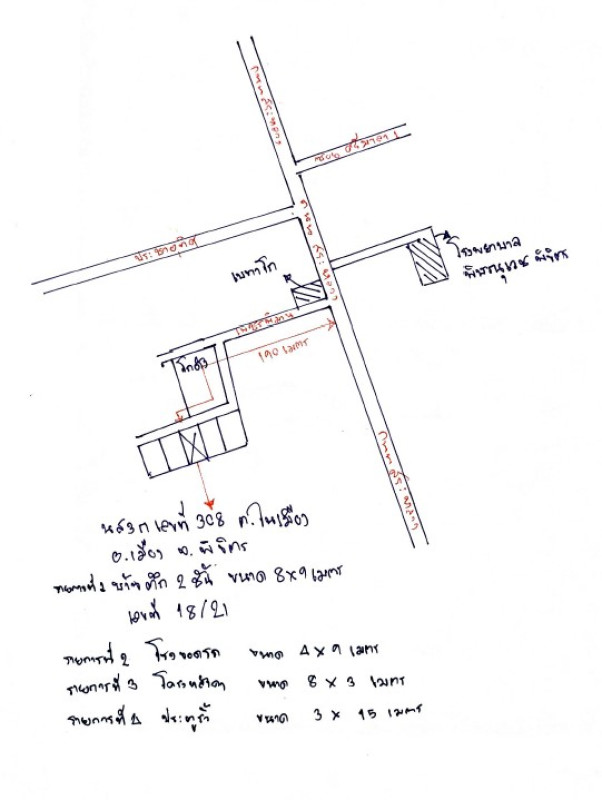 ถนน สระหลวง
ซอย ศรีมาลา 1
ถนน สระหลวง
ประชาอุทิศ
โรงพยาบาล
พิจิตร
เบทาโก
190 เมตร
ถนน สระหลวง
โฉนดเลขที่ 308 ต.ในเมือง
อ.เมือง จ.พิจิตร
รายการที่ 1 บ้านตึก 2 ชั้น ขนาด 8x9 เมตร
เลขที่ 18/21
รายการที่ 2 โรงจอดรถ ขนาด 4x9 เมตร
รายการที่ 3 โครงหลังคา ขนาด 8 x 3 เมตร
รายการที่ 4 ประตูรั้ว ขนาด 3 x 15 เมตร